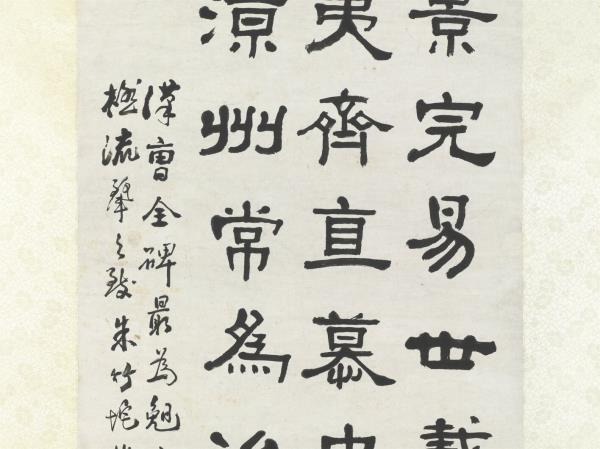 景完易世載
夷齊直慕史
涼州常為治
漢曹全碑最為
極流之致朱竹垞